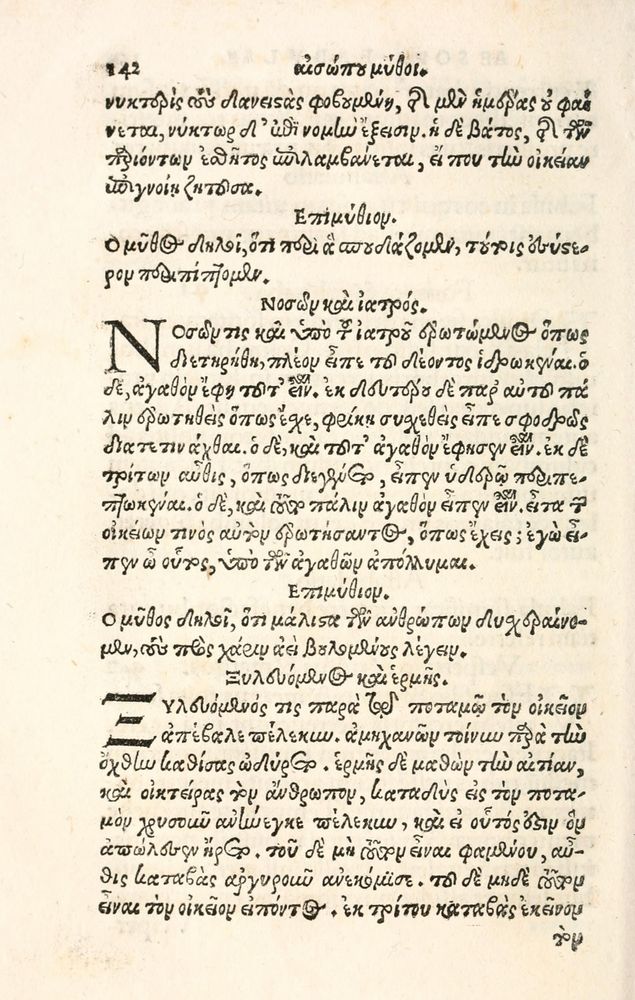 142 αἰσώπου μῦθοι.
νυκτερὶς τοὺς δανειστὰς φοβουμένη, διὰ μὲν ἡμέρας οὐ φαί
νεται, νύκτωρ δ' ἐπὶ νομὴν ἔξεισιν. ἡ δὲ βάτος, διὰ τῶν
παριόντων ἐσθῆτος ἐπιλαμβάνεται, εἴ που τὴν οἰκείαν
ἐπιγνοίη ζητοῦσα.
Επιμύθιον.
Ο μῦθος δηλοῖ, ὅτι περὶ ἃ σπουδάζομεν, τούτοις ἐς ὕστε-
ρον περιπίπτομεν.
Νοσῶν καὶ ἰατρός.
ΝΟσῶν τις καὶ ὑπὸ τοῦ ἰατροῦ ἐρωτώμενος ὅπως
διετηρήθη, πλέον εἶπε τοῦ δέοντος ἱδρωκέναι. ὁ
δὲ, ἀγαθὸν ἔφη τοῦτ' εἶναι. ἐκ δευτέρου δὲ παρ' αὐτοῦ πά
λιν ἐρωτηθεὶς ὅπως ἔχει, φρίκῃ συχεθεὶς εἶπε σφοδρῶς
διατετινάχθαι. ὁ δὲ, καὶ τοῦτ' ἀγαθὸν ἔφησεν εἶναι. ἐκ δὲ
τρίτων αὖθις, ὅπως διεγένετο, εἶπεν ὑδέρῳ περιπε-
πτωκέναι. ὁ δὲ, καὶ τοῦτο πάλιν ἀγαθὸν εἶπεν εἶναι. εἶτα τῶν
οἰκείων τινὸς αὐτὸν ἐρωτήσαντος, ὅπως ἔχεις; ἐγὼ εἶ-
πεν ὦ οὗτος, ὑπὸ τῶν ἀγαθῶν ἀπόλλυμαι.
Επιμύθιον.
Ο μῦθος δηλοῖ, ὅτι μάλιστα τῶν ἀνθρώπων δυσχεραίνο-
μεν, τοὺς πρὸς χάριν ἀεὶ βουλομένους λέγειν.
Ξυλευόμενος καὶ ἑρμῆς.
ΞΥλευόμενός τις παρά τινι ποταμῷ τὸν οἰκεῖον
ἀπέβαλε πέλεκυν. ἀμηχανῶν τοίνυν παρὰ τὴν
ὄχθην καθίσας ὠδύρετο. ἑρμῆς δὲ μαθὼν τὴν αἰτίαν,
καὶ οἰκτείρας τὸν ἄνθρωπον, καταδὺς εἰς τὸν ποτα-
μὸν χρυσοῦν ἀνήνεγκε πέλεκυν, καὶ εἰ οὗτός ἐστιν ὃν
ἀπώλεσεν ἤρετο. τοῦ δὲ μὴ τοῦτον εἶναι φαμένου, αὖ-
θις καταβὰς ἀργυροῦν ἀνεκόμισε. τοῦ δὲ μηδὲ τοῦτον
εἶναι τὸν οἰκεῖον εἰπόντος. ἐκ τρίτου καταβὰς ἐκεῖνον
τὸν